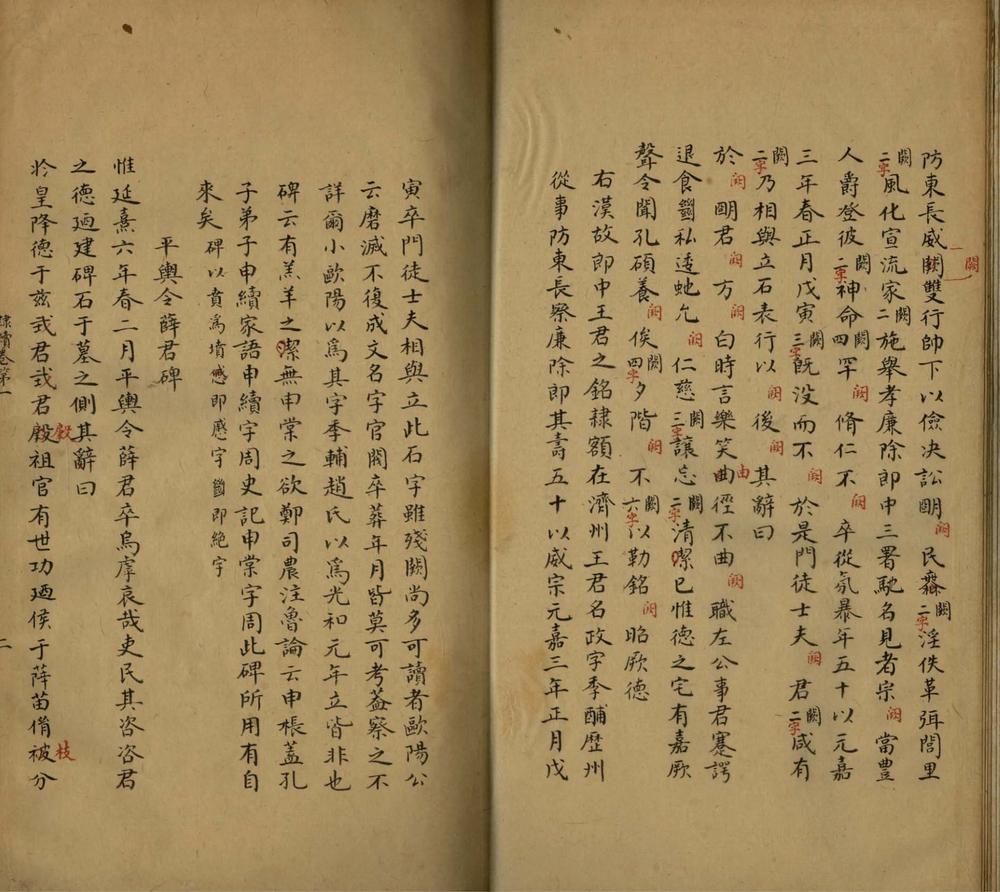 防東長威闕雙行帥下以儉决訟朙闕民斖闕二字淫佚革弭閭里
闕二字風化宣流家二闕施舉孝廉除郎中三署馳名見者宗闕當豊
人爵登彼闕二字神命四罕闕脩仁不闕卒從氛暴年五十以元嘉
三年春正月戊寅闕三字旣没而不闕於是門徒士夫闕君闕二字咸有
闕二字乃相與立石表行以闕後闕其辭曰
於闕朙君闕方闕白時言樂笑曲徑不曲闕職左公事君蹇諤
退食㡭私逶虵允闕仁慈闕三字讓忘闕二字清潔已惟德之宅有嘉厥
聲令聞孔碩養闕俟闕四字夕階闕不闕六字以勒銘闕昭厥德
右漢故郎中王君之銘隸額在濟州王君名政字季酺歷州
從事防東長察廉除郎其壽五十以威宗元嘉三年正月戊
寅卒門徒士夫相與立此石字雖殘闕尚多可讀者歐陽公
云磨滅不復成文名字官閥卒葬年月皆莫可考葢察之不
詳爾小歐陽以爲其字季輔趙氏以爲光和元年立皆非也
碑云有羔羊之潔無申棠之欲鄭司農注魯論云申棖葢孔
子弟子申續家語申續字周史記申棠字周此碑所用有自
來矣碑以賁爲墳感即感字㡭即絶字
平輿令薛君碑
惟延熹六年春二月平輿令薛君卒烏虖哀哉吏民其咨咨君
之德廼建碑石于墓之側其辭曰
殷
於皇降德于兹我君我君殷祖官有世功廼侯于薛苗俏被分
枝
隸續卷第一
二